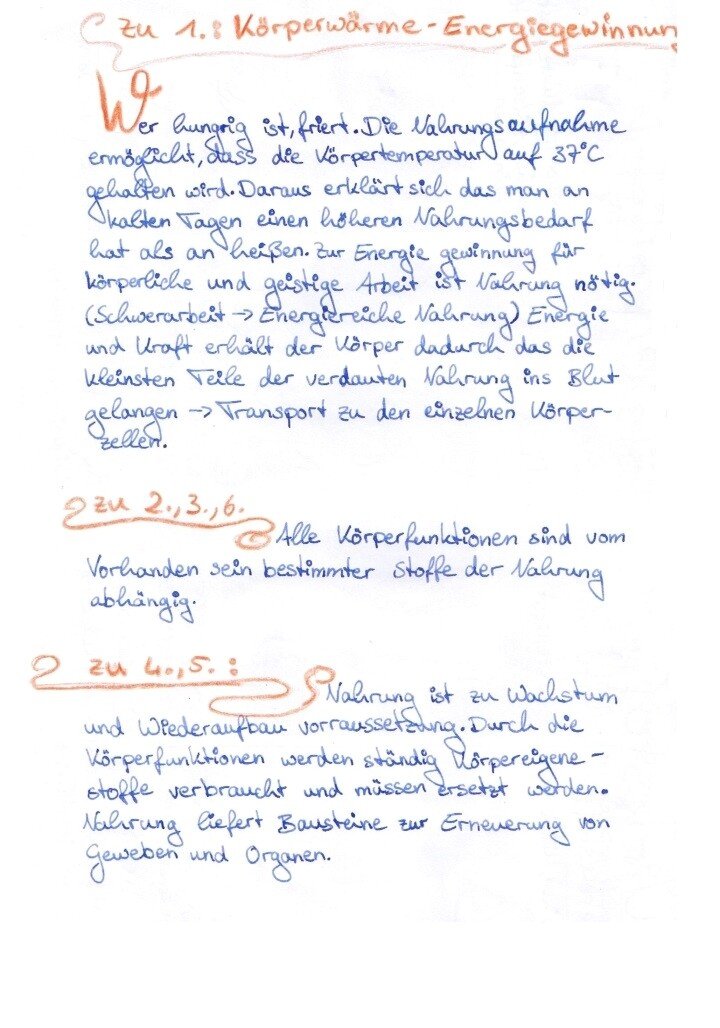 zu 1.: Körperwärme - Energiegewinnun
Wer hungrig ist, friert. Die Nahrungsaufnahme
ermöglicht, dass die Körpertemperatur auf 37°C
gehalten wird. Daraus erklärt sich das man an
kalten Tagen einen höheren Nahrungsbedarf
hat als an heißen. Zur Energie gewinnung für
körperliche und geistige Arbeit ist Nahrung nötig.
(Schwerarbeit → Energiereiche Nahrung) Energie
und Kraft erhält der Körper dadurch das die
kleinsten Teile der verdauten Nahrung ins Blut
gelangen → Transport zu den einzelnen Körper-
zellen.
zu 2., 3., 6.
Alle Körperfunktionen sind vom
Vorhanden sein bestimmter Stoffe der Nahrung
abhängig.
zu 4., 5. :
Nahrung ist zu Wachstum
und Wiederaufbau vorraussetzung. Durch die
Körperfunktionen werden ständig Körpereigene-
stoffe verbraucht und müssen ersetzt werden.
Nahrung liefert Bausteine zur Erneuerung von
Geweben und Organen.